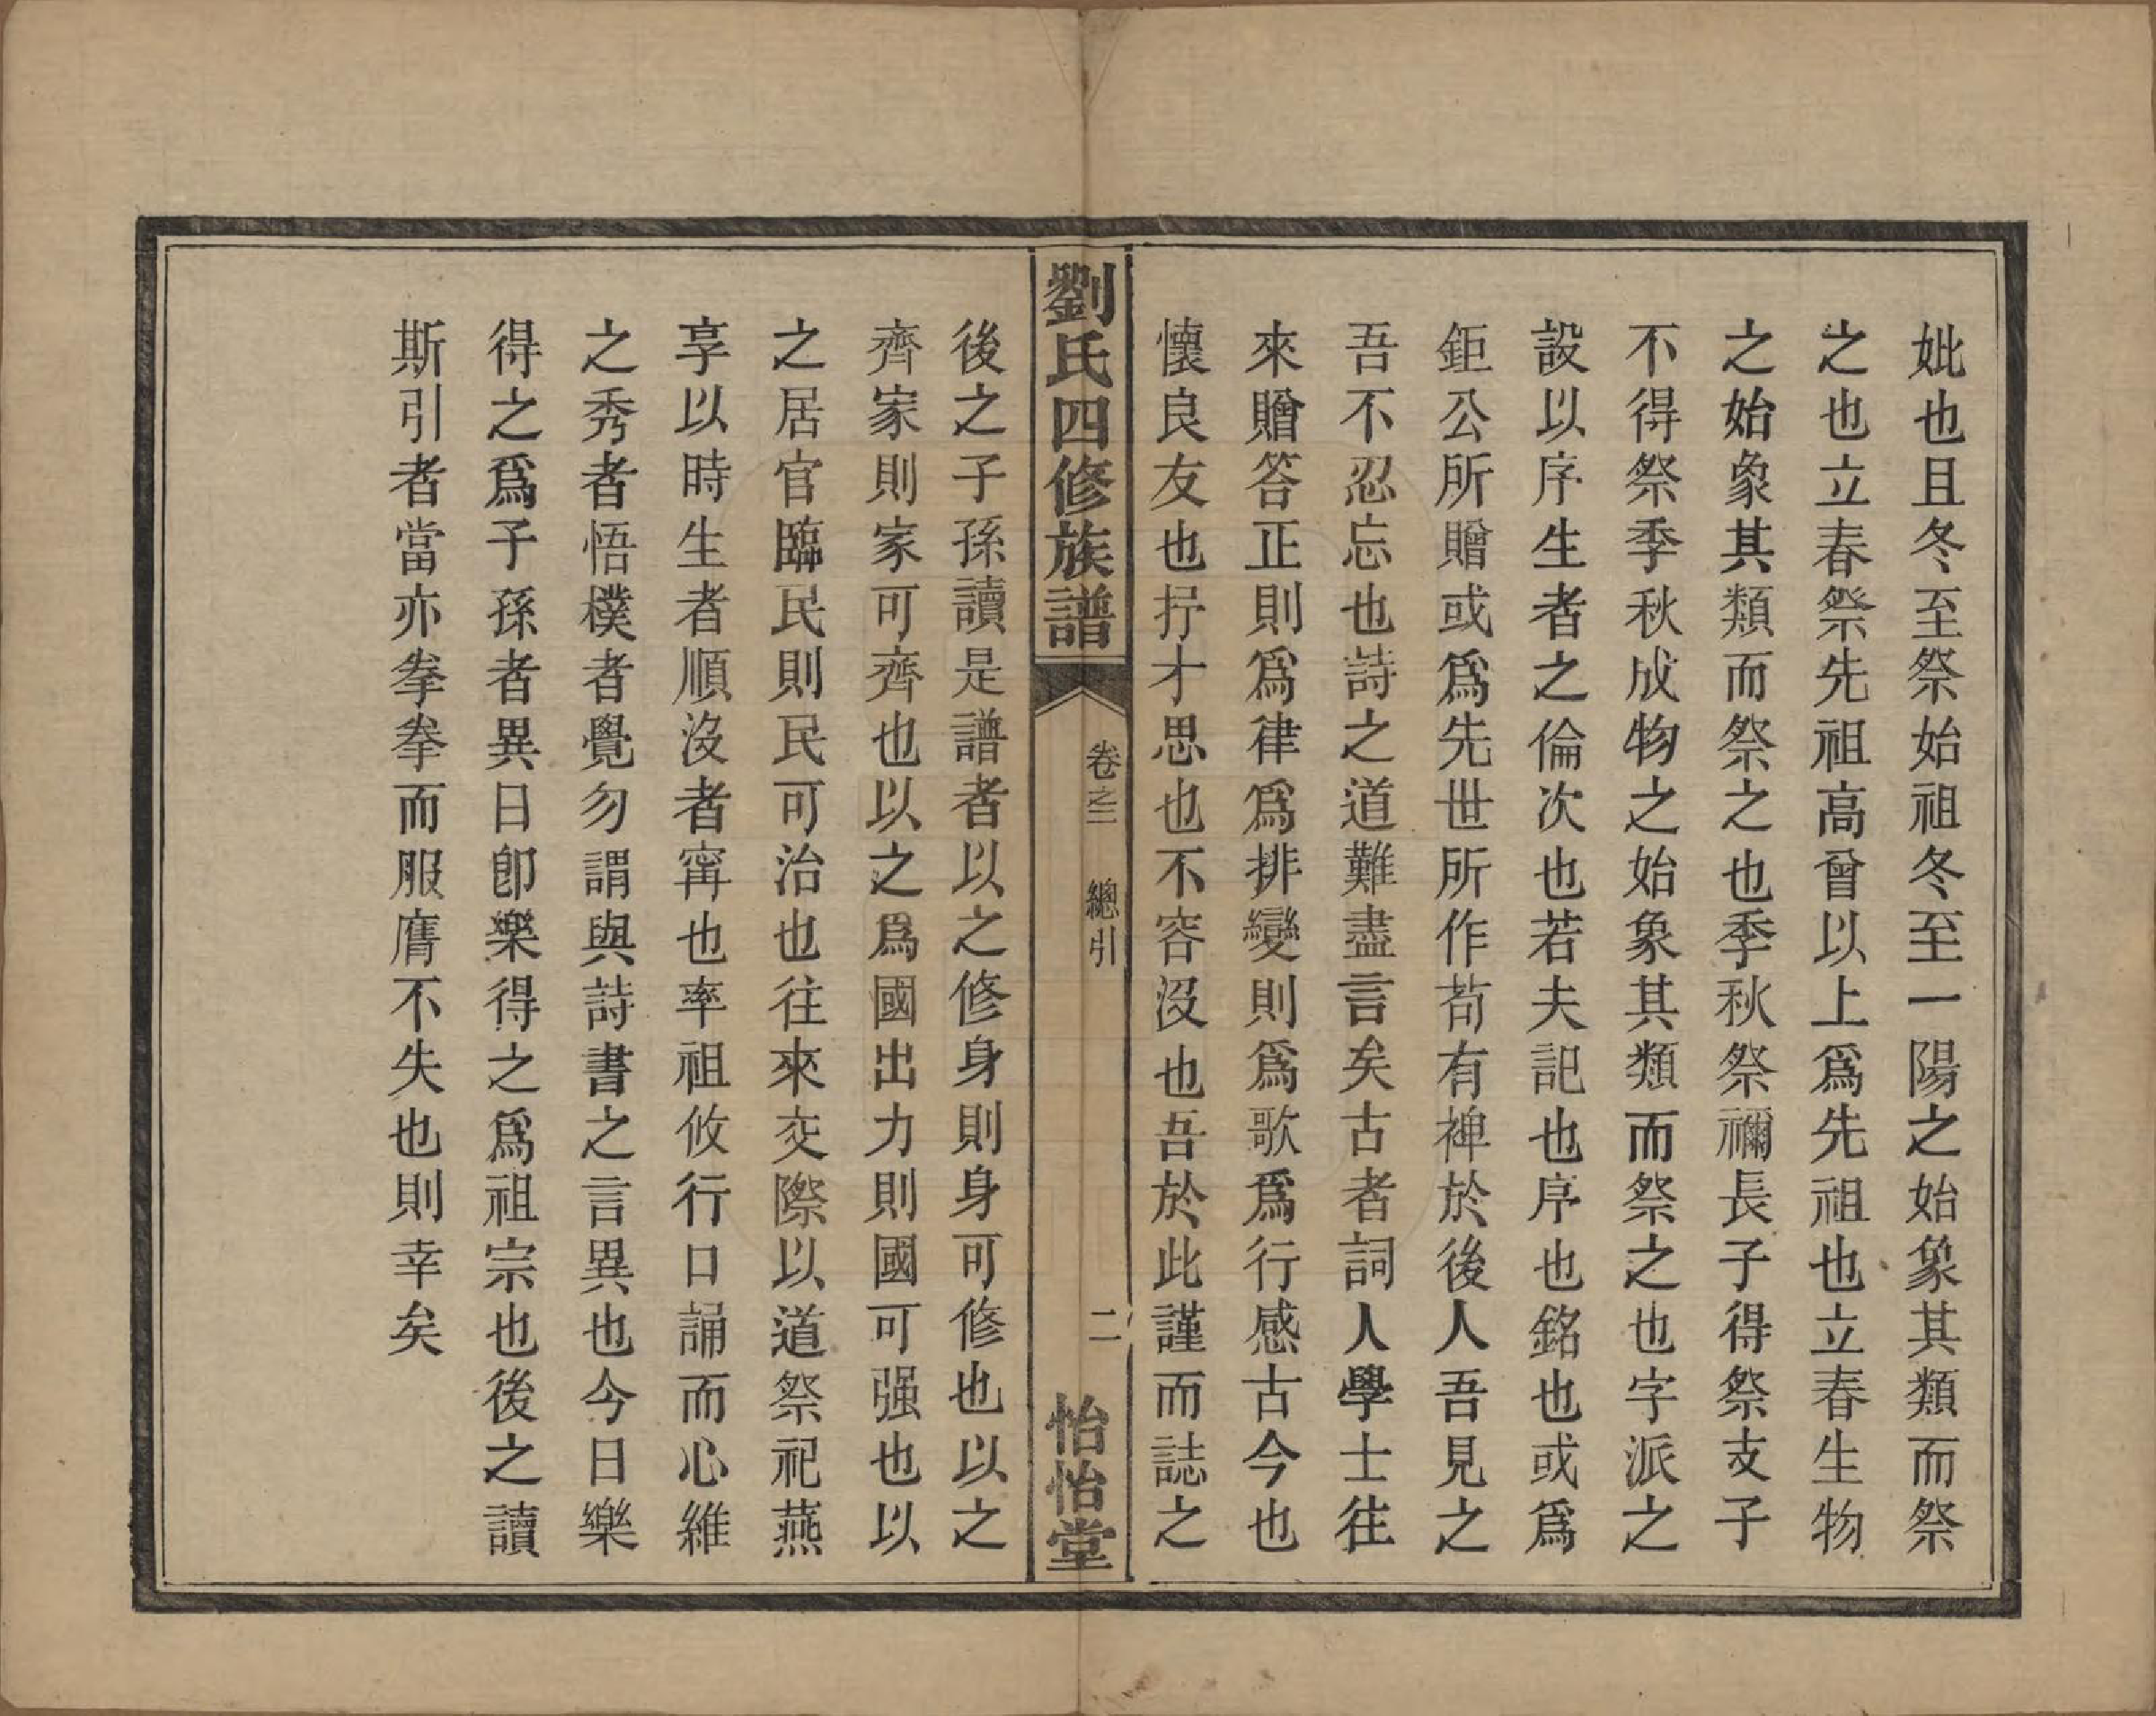 妣也且冬至祭始祖冬至一陽之始象其類而祭
之也立春祭先祖高曾以上爲先祖也立春生物
之始象其類而祭之也季秋祭禰長子得祭支子
不得祭季秋成物之始象其類而祭之也字派之
設以序生者之倫次也若夫記也序也銘也或爲
鉅公所贈或爲先世所作苟有裨於後人吾見之
吾不忍忘也詩之道難盡言矣古者詞人學士往
來贈答正則爲律爲排變則爲歌爲行感古今也
懷良友也抒才思也不容沒也吾於此謹而誌之
劉氏四修族譜
卷之三 總引
二
怡怡堂
後之子孫讀是譜者以之修身則身可修也以之
齊家則家可齊也以之爲國出力則國可强也以
之居官臨民則民可治也往來交際以道祭祀燕
享以時生者順沒者甯也率祖攸行口誦而心維
之秀者悟樸者覺勿謂與詩書之言異也今日樂
得之爲子孫者異日卽樂得之爲祖宗也後之讀
斯引者當亦拳拳而服膺不失也則幸矣